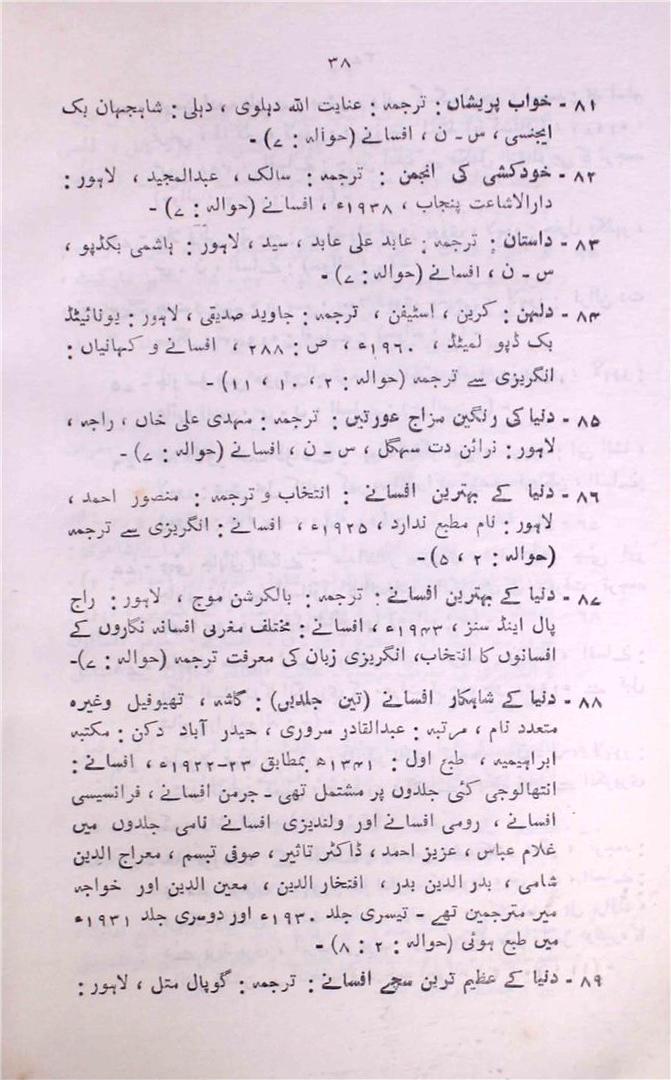 ۳۸
۸۱ - خواب پریشاں : ترجمہ : عنایت اللہ دہلوی ، دہلی : شاہجہان بک
ایجنسی ، س - ن ، افسانے (حوالہ : ۷) -
۸۲ - خودکشی کی انجمن : ترجمہ : سالک ، عبدالمجید ، لاہور :
دارالاشاعت پنجاب ، ۱۹۳۸ء ، افسانے (حوالہ : ۷) -
۸۳ - داستان : ترجمہ : عابد علی عابد ، سید ، لاہور : ہاشمی بکڈپو ،
س - ن ، افسانے (حوالہ : ۷) -
۸۴ - دلہن : کرین ، اسٹیفن ، ترجمہ : جاوید صدیقی ، لاہور : یونائیٹڈ
بک ڈپو لمیٹڈ ، ۱۹۶۰ء ، ص : ۲۸۸ ، افسانے و کہانیاں :
انگریزی سے ترجمہ (حوالہ : ۲ ، ۱۰ ، ۱۱) -
۸۵ - دنیا کی رنگین مزاج عورتیں : ترجمہ : مہدی علی خاں ، راجہ ،
لاہور : نرائن دت سہگل ، س - ن ، افسانے (حوالہ : ۷) -
۸۶ - دنیا کے بہترین افسانے : انتخاب و ترجمہ : منصور احمد ،
لاہور : نام مطبع ندارد ، ۱۹۲۵ء ، افسانے : انگریزی سے ترجمہ
(حوالہ : ۲ ، ۵) -
۸۷ - دنیا کے بہترین افسانے : ترجمہ : بالکرشن موج ، لاہور : راج
پال اینڈ سنز ، ۱۹۴۳ء ، افسانے : مختلف مغربی افسانہ نگاروں کے
افسانوں کا انتخاب، انگریزی زبان کی معرفت ترجمہ (حوالہ : ۷)-
۸۸ - دنیا کے شاہکار افسانے (تین جلدیں) : گاشہ ، تھیوفیل وغیرہ
متعدد نام ، مرتبہ : عبدالقادر سروری ، حیدر آباد دکن : مکتبہ
ابراہیمیہ ، طبع اول : ۱۳۴۱ھ بمطابق ۲۳-۱۹۲۲ء ، افسانے :
انتھالوجی کئی جلدوں پر مشتمل تھی - جرمن افسانے ، فرانسیسی
افسانے ، رومی افسانے اور ولندیزی افسانے نامی جلدوں میں
غلام عباس ، عزیز احمد ، ڈاکٹر تاثیر ، صوفی تبسم ، معراج الدین
شامی ، بدر الدین بدر ، افتخار الدین ، معین الدین اور خواجہ
میر مترجمین تھے - تیسری جلد ۱۹۳۰ء اور دوسری جلد ۱۹۳۱ء
میں طبع ہوئی (حوالہ : ۲ : ۸) -
۸۹ - دنیا کے عظیم ترین سچے افسانے : ترجمہ : گوپال متل ، لاہور :